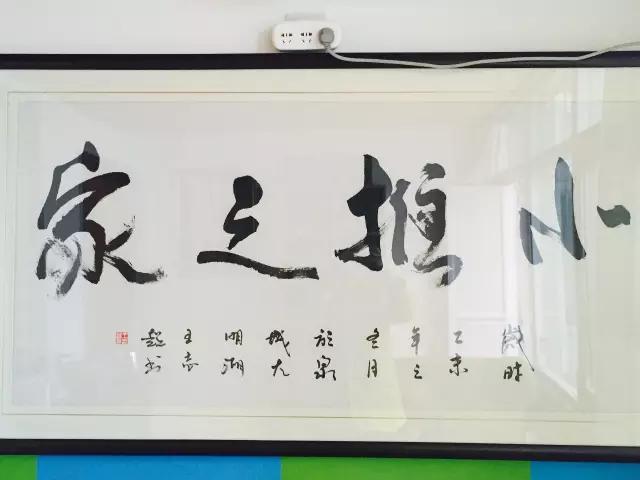 小推之家
歲時
乙未
年之
冬月
於泉
城大
明湖
王志
书